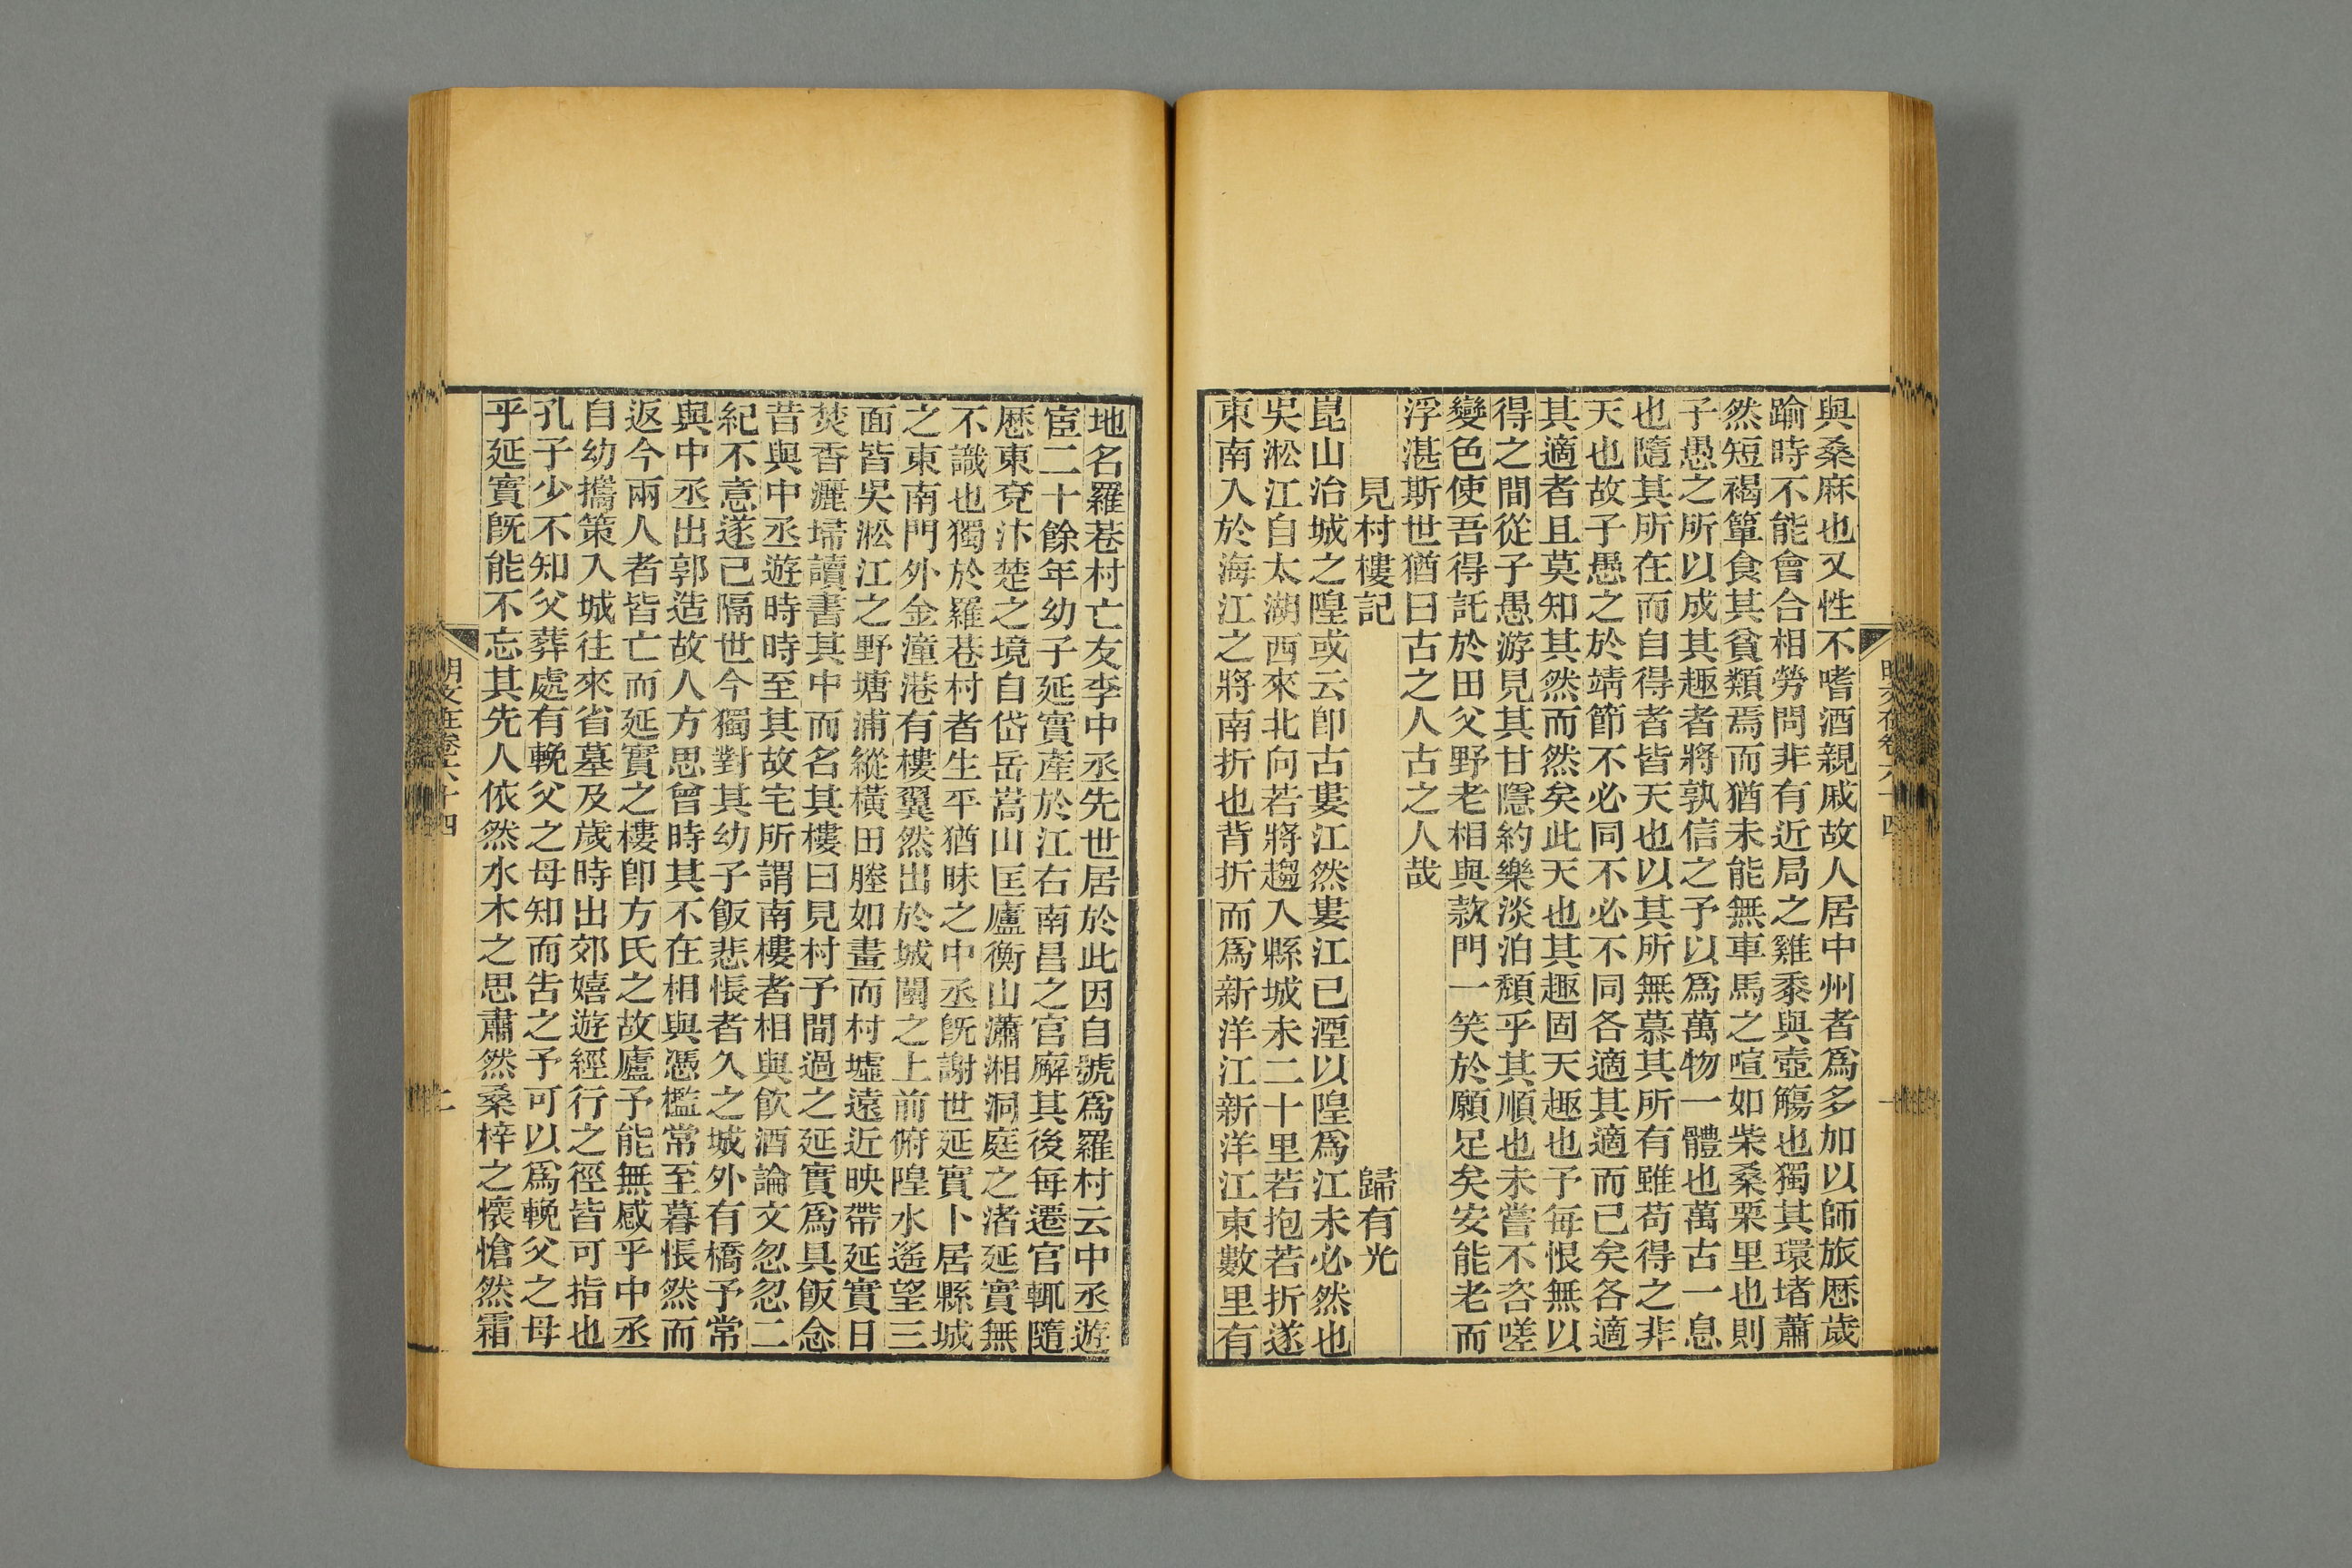 與桑麻也又性不嗜酒親戚故人居中州者爲多加以師旅歷歲
踰時不能會合相勞問非有近局之雞黍與壺觴也獨其環堵蕭
然短褐簞食其貧類焉而猶未能無車馬之喧如柴桑栗里也則
子愚之所以成其趣者將孰信之予以爲萬物一體也萬古一息
也隨其所在而自得者皆天也以其所無慕其所有雖苟得之非
天也故子愚之於靖節不必同不必不同各適其適而已矣各適
其適者且莫知其然而然矣此天也其趣固天趣也予每恨無以
得之間從子愚游見其甘隱約樂淡泊頹乎其順也未嘗不咨嗟
變色使吾得託於田父野老相與款門一笑於願足矣安能老而
浮湛斯世猶曰古之人古之人哉
見村樓記
歸有光
崑山治城之隍或云卽古婁江然婁江已湮以隍爲江未必然也
吳淞江自太湖西來北向若將趨入縣城未二十里若抱若折遂
東南入於海江之將南折也背折而爲新洋江新洋江東數里有
地名羅巷村亡友李中丞先世居於此因自號爲羅村云中丞遊
宦二十餘年幼子延實產於江右南昌之官廨其後每遷官輒隨
歷東兗汴楚之境自岱岳嵩山匡廬衡山瀟湘洞庭之渚延實無
不識也獨於羅巷村者生平猶昧之中丞旣謝世延實卜居縣城
之東南門外金潼港有樓翼然出於城闉之上前俯隍水遙望三
面皆吳淞江之野塘浦縱橫田塍如畫而村墟遠近映帶延實日
焚香灑埽讀書其中而名其樓曰見村予間過之延實爲具飯念
昔與中丞遊時時至其故宅所謂南樓者相與飮酒論文忽忽二
紀不意遂已隔世今獨對其幼子飯悲悵者久之城外有橋予常
與中丞出郭造故人方思曾時其不在相與憑檻常至暮悵然而
返今兩人者皆亡而延實之樓卽方氏之故廬予能無感乎中丞
自幼攜策入城往來省墓及歲時出郊嬉遊經行之徑皆可指也
孔子少不知父葬處有輓父之母知而告之予可以爲輓父之母
乎延實旣能不忘其先人依然水木之思肅然桑梓之懷愴然霜
明文在卷六十四
二